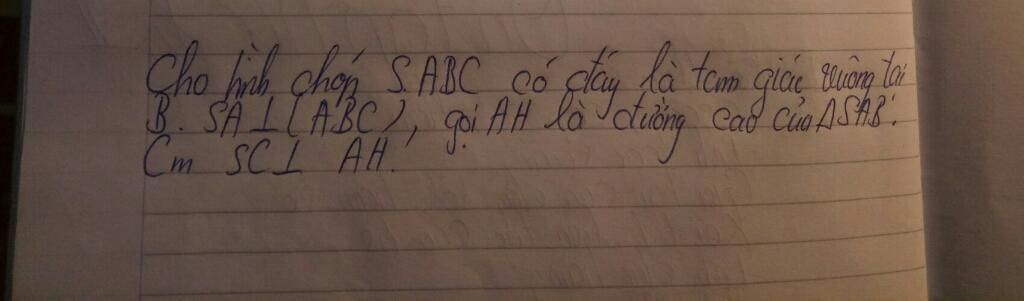 Cho hình chóp S.ABC có đáy là tam giác vuông tại
B. SA⊥(ABC), gọi AH là đường cao của ΔSAB.
Cm SC⊥ AH.